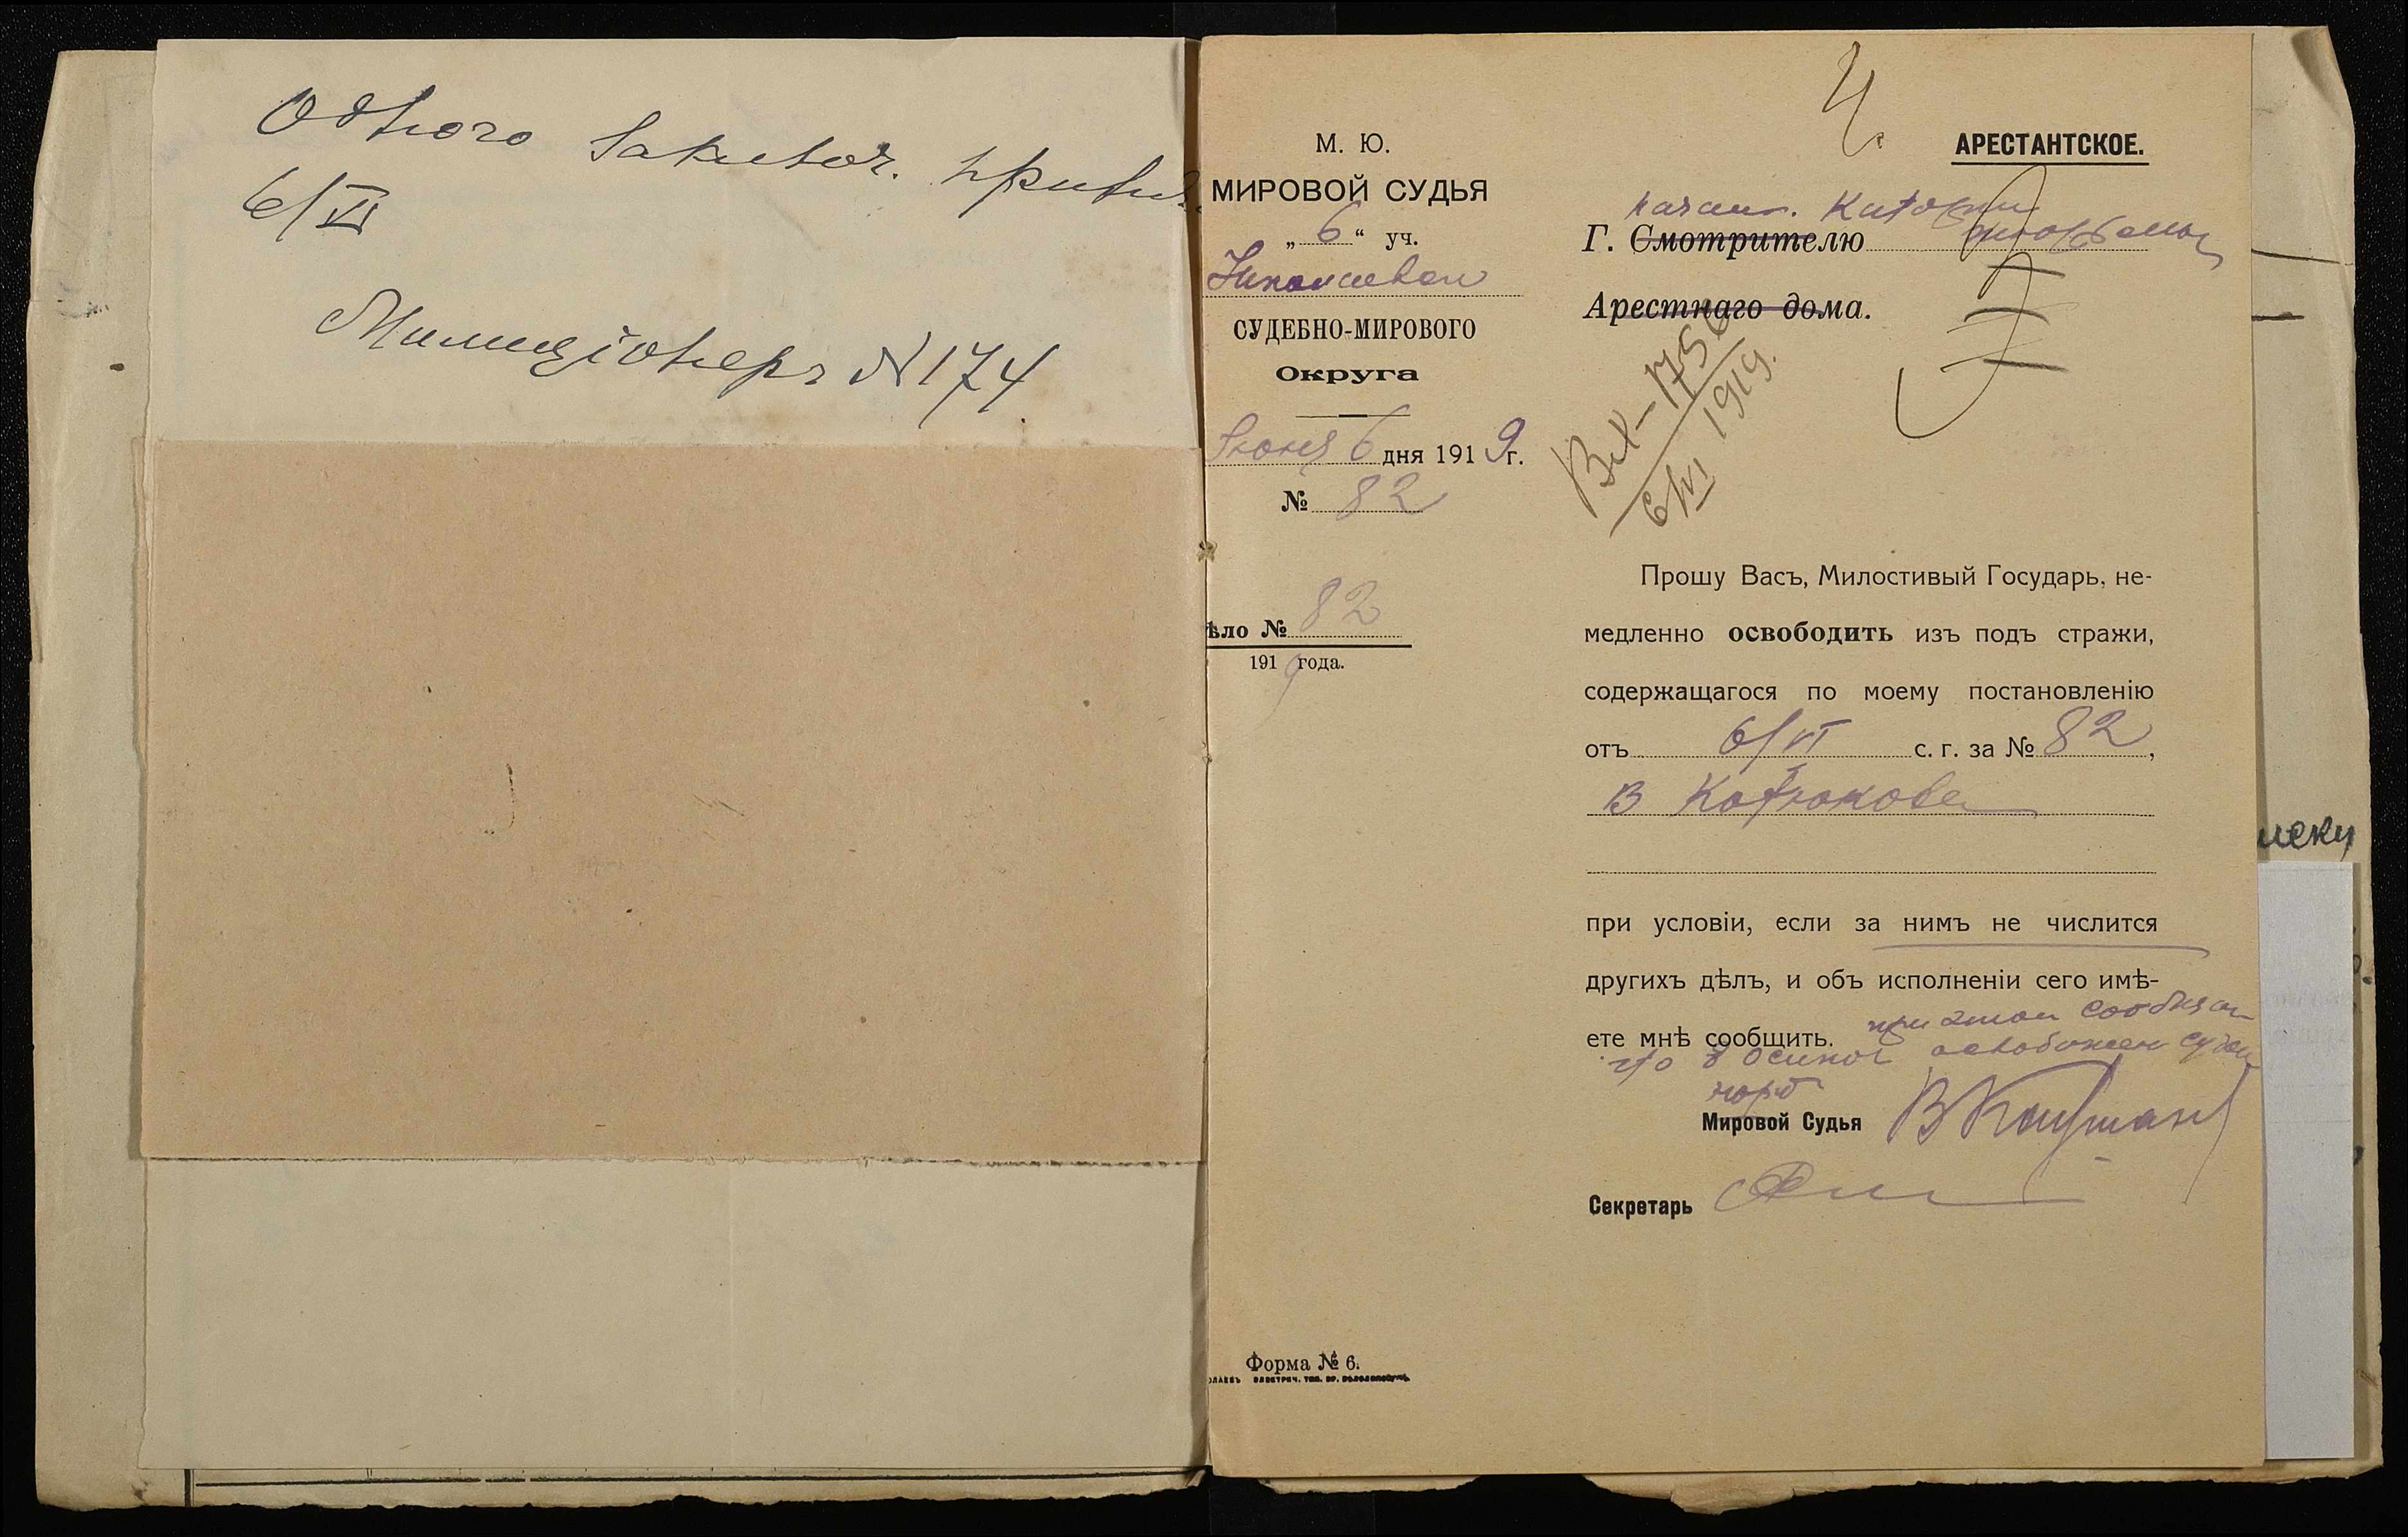 Одного Заключ. принял
6/VI
Милиціонеръ № 174
М. Ю.
МИРОВОЙ СУДЬЯ
„ 6 “ уч.
Николаевск
СУДЕБНО-МИРОВОГО
Округа
Июня 6 дня 1919 г.
№ 82
ѣло № 82
1919 года.
Форма № 6.
АРЕСТАНТСКОЕ.
начал. Каторжн
Г. Смотрителю
Арестнаго дома.
Вх-1756
6/VI 1919.
Прошу Васъ, Милостивый Государь, не-
медленно освободить изъ подъ стражи,
содержащагося по моему постановленію
отъ 6/VI с. г. за № 82,
В Катюкова
при условіи, если за нимъ не числится
другихъ дѣлъ, и объ исполненіи сего имѣ-
ете мнѣ сообщить. при этом сообщаю
что Осипов освобожден судом
Мировой Судья В Кауфман
Секретарь
иску